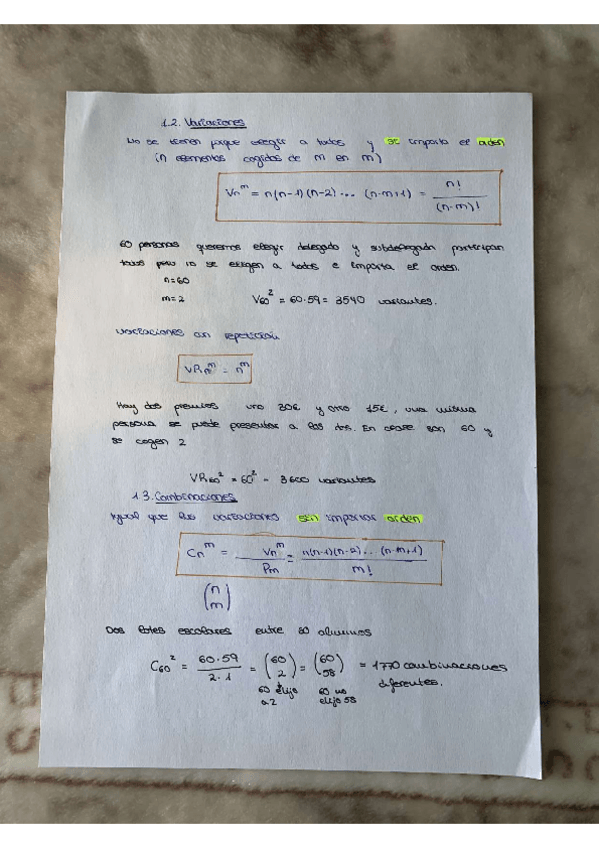 1.2. Variaciones
No se tienen porque elegir a todos y se importa el orden
(n elementos cogidos de m en m)
Vn^m = n(n-1)(n-2)... (n-m+1) = n! / (n-m)!
60 personas queremos elegir delegado y subdelegado participan
todos pero no se eligen a todos e importa el orden.
n=60
m=2 V60^2 = 60·59 = 3540 variantes.
variaciones con repetición
VRn^m = n^m
Hay dos premios uno 30€ y otro 15€, una misma
persona se puede presentar a los dos. En clase son 60 y
se cogen 2
VR60^2 = 60^2 = 3600 variantes
1.3. Combinaciones
Igual que las variaciones sin importar orden
Cn^m = Vn^m / Pm = n(n-1)(n-2)... (n-m+1) / m!
(n m)
Dos lotes escolares entre 60 alumnos
C60^2 = 60·59 / 2·1 = (60 2) = (60 58) = 1770 combinaciones
diferentes.
60 elijo 60 no
a 2 elijo 58